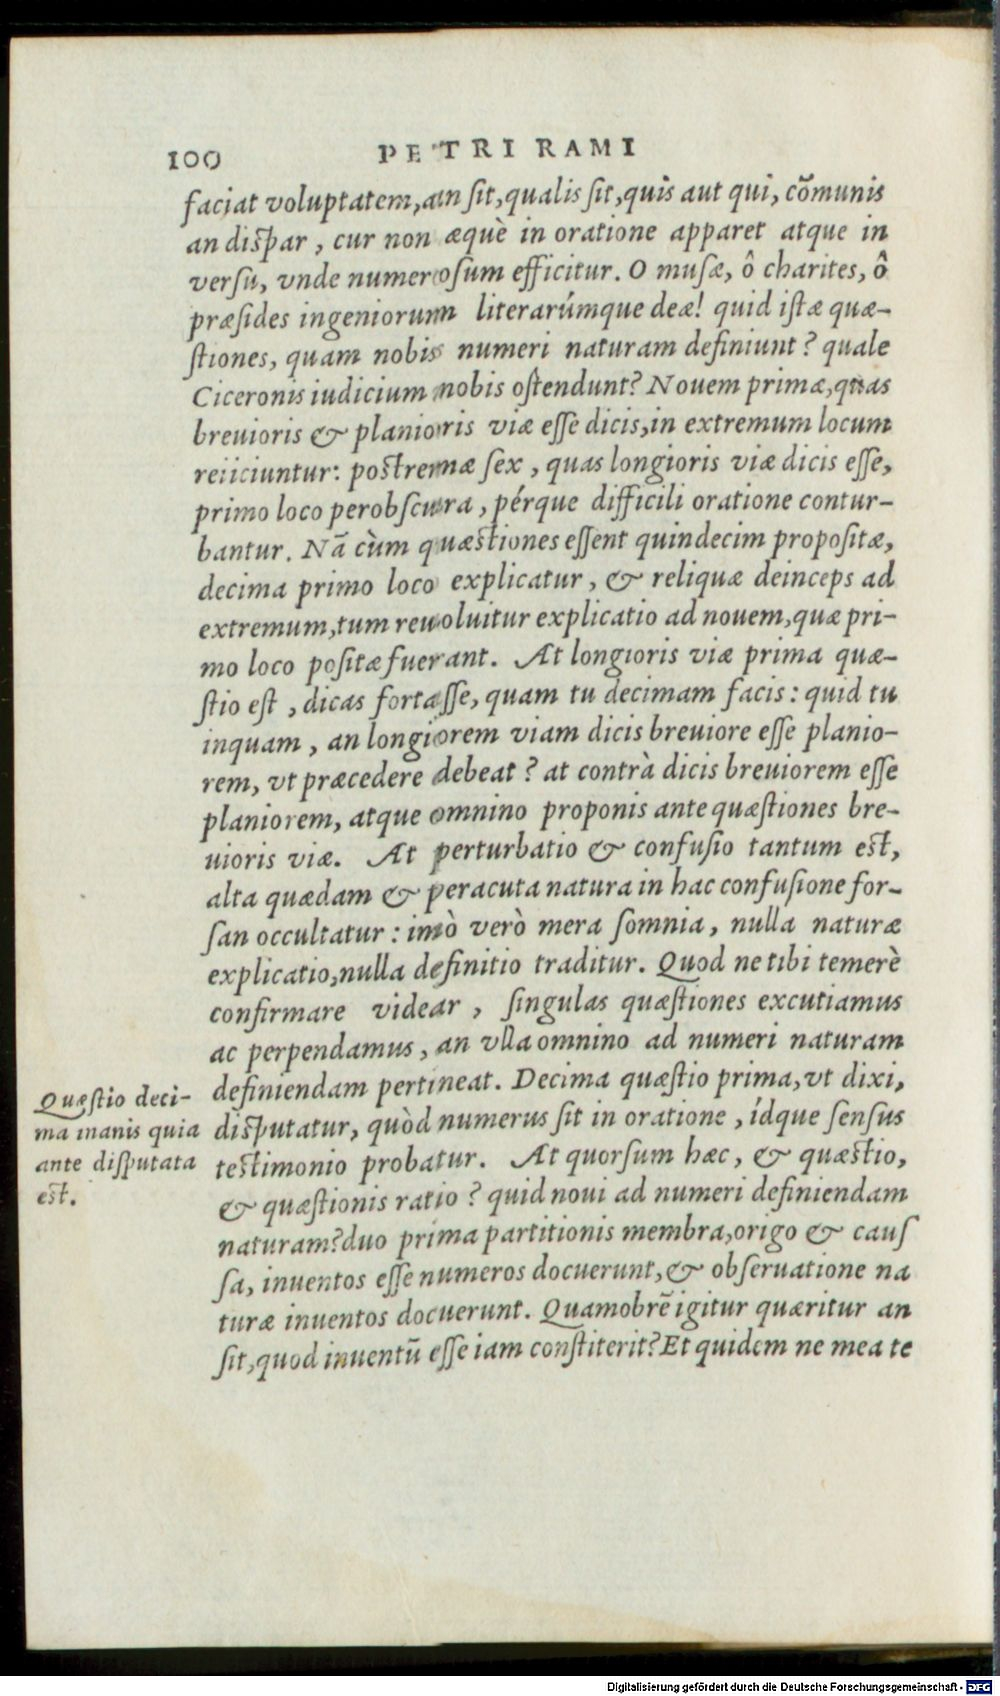 100 PETRI RAMI
faciat voluptatem, an sit, qualis sit, quis aut qui, cõmunis
an dispar, cur non æquè in oratione apparet atque in
versu, vnde numerosum efficitur. O musæ, ô charites, ô
præsides ingeniorum literarúmque deæ! quid istæ quæ-
stiones, quam nobis numeri naturam definiunt? quale
Ciceronis iudicium nobis ostendunt? Nouem primæ, quas
breuioris & planioris viæ esse dicis, in extremum locum
reiiciuntur: postremæ sex, quas longioris viæ dicis esse,
primo loco perobscura, pérque difficili oratione contur-
bantur. Nã cùm quæstiones essent quindecim propositæ,
decima primo loco explicatur, & reliquæ deinceps ad
extremum, tum reuoluitur explicatio ad nouem, quæ pri-
mo loco positæ fuerant. At longioris viæ prima quæ-
stio est, dicas fortasse, quam tu decimam facis: quid tu
inquam, an longiorem viam dicis breuiore esse planio-
rem, vt præcedere debeat? at contrà dicis breuiorem esse
planiorem, atque omnino proponis ante quæstiones bre-
uioris viæ. At perturbatio & confusio tantum est,
alta quædam & peracuta natura in hac confusione for-
san occultatur: imò verò mera somnia, nulla naturæ
explicatio, nulla definitio traditur. Quod ne tibi temerè
confirmare videar, singulas quæstiones excutiamus
ac perpendamus, an vlla omnino ad numeri naturam
definiendam pertineat. Decima quæstio prima, vt dixi,
disputatur, quòd numerus sit in oratione, ídque sensus
testimonio probatur. At quorsum hæc, & quæstio,
& quæstionis ratio? quid noui ad numeri definiendam
naturam? duo prima partitionis membra, origo & caus
sa, inuentos esse numeros docuerunt, & obseruatione na
turæ inuentos docuerunt. Quamobrẽ igitur quæritur an
sit, quod inuentũ esse iam constiterit? Et quidem ne mea te
Quæstio deci-
ma inanis quia
ante disputata
est.
Digitalisierung gefördert durch die Deutsche Forschungsgemeinschaft - DFG